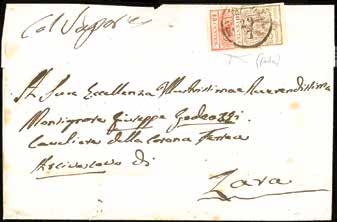 Col Vapore
A Sua Eccellenza Illustrissima Reverendissima
Monsignore Giuseppe Godeassi
Cavaliere della Corona Ferrea
Arcivescovo di
Zara